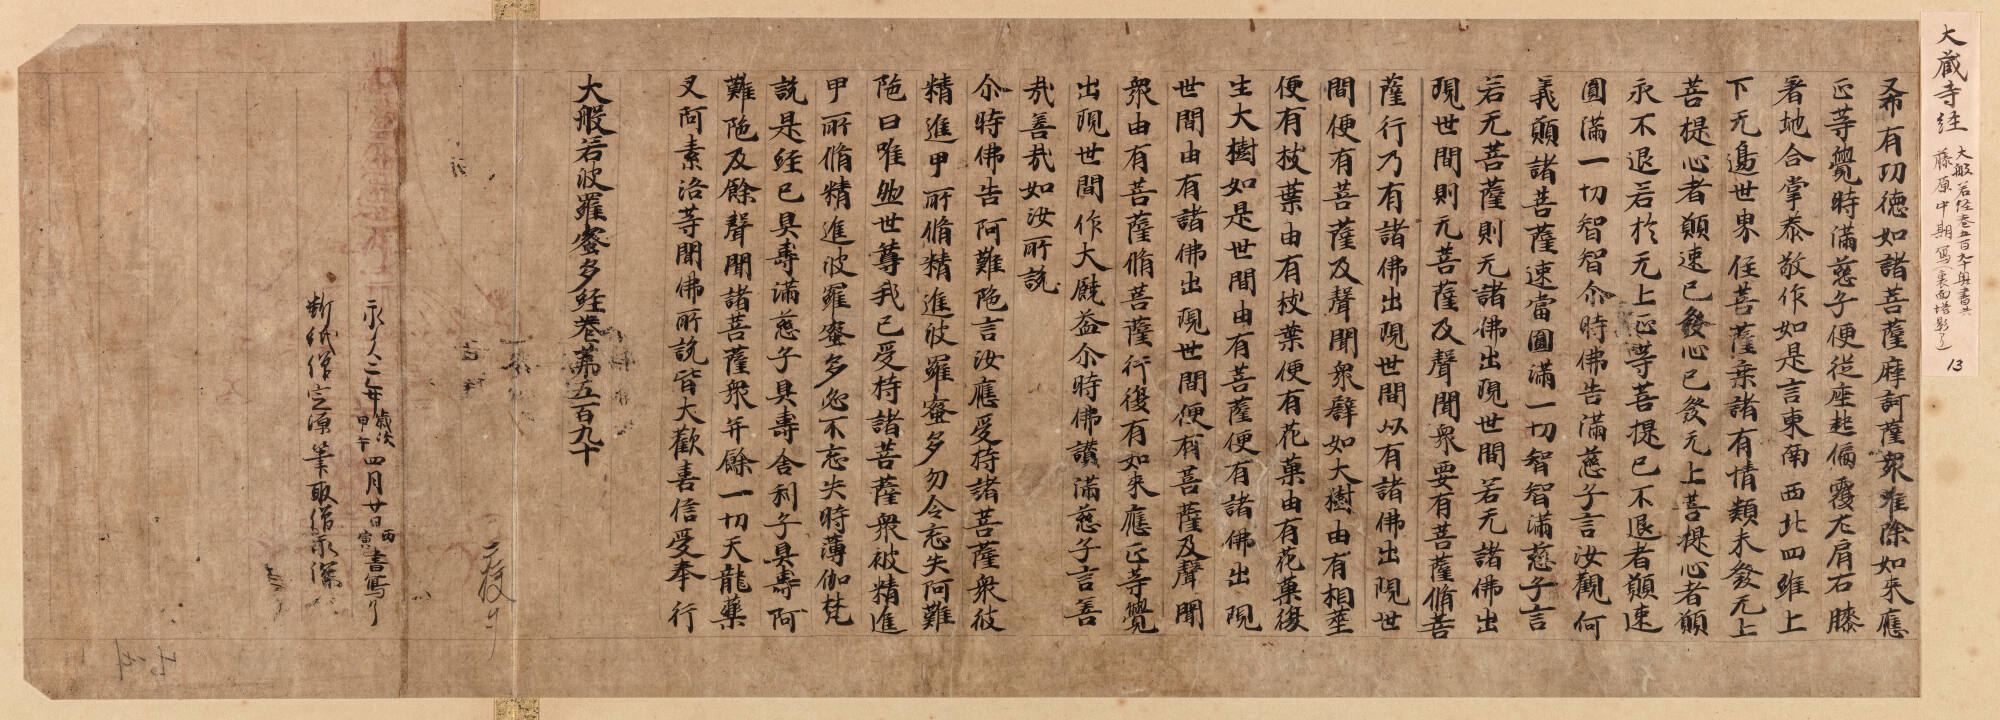 大蔵寺経
大般若経巻五百九十奥書共
藤原中期写(裏面塔影了)
13
又希有功徳如諸菩薩摩訶薩衆唯除如来應
正等覺時滿慈子便從座起偏覆左肩右膝
著地合掌恭敬作如是言東南西北四維上
下无邊世界住菩薩乗諸有情類未發无上
菩提心者願速已發心已發无上菩提心者願
永不退若於无上正等菩提已不退者願速
圓滿一切智智尒時佛告滿慈子言汝觀何
義願諸菩薩速當圓滿一切智智滿慈子言
若无菩薩則无諸佛出現世間若无諸佛出
現世間則无菩薩及聲聞衆要有菩薩脩菩
薩行乃有諸佛出現世間以有諸佛出現世
間便有菩薩及聲聞衆譬如大樹由有根莖
便有枝葉由有枝葉便有花菓由有花菓復
生大樹如是世間由有菩薩便有諸佛出現
世間由有諸佛出現世間便有菩薩及聲聞
衆由有菩薩脩菩薩行復有如來應正等覺
出現世間作大饒益尒時佛讃滿慈子言善
哉善哉如汝所說
尒時佛告阿難陁言汝應受持諸菩薩衆被
精進甲所脩精進波羅蜜多勿令忘失阿難
陁曰唯然世尊我已受持諸菩薩衆被精進
甲所脩精進波羅蜜多必不忘失時薄伽梵
說是經已具壽滿慈子具壽舍利子具壽阿
難陁及餘聲聞諸菩薩衆并餘一切天龍藥
叉阿素洛等聞佛所說皆大歡喜信受奉行
大般若波羅蜜多經巻第五百九十
一校了
永久二年歳次甲午四月廿日丙寅書寫了
断紙僧定源筆取僧永深